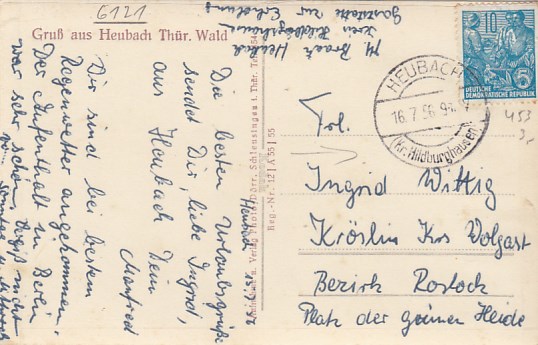 6121
Gruß aus Heubach Thür. Wald
M. Heubach
Kreis Hildburghausen
Gaststätte zur Erholung
Heubach, 15.7.56
Die besten Urlaubsgrüße
sendet Dir, liebe Ingrid,
aus Heubach Dein
Manfred
Wir sind bei bestem
Regenwetter angekommen.
Der Aufenthalt in Berlin
war sehr schön,
DEUTSCHE
DEMOKRATISCHE REPUBLIK
10
5
HEUBACH
16.7.56
(Kr. Hildburghausen)
453
3,-
Frl.
Ingrid Wittig
Kröslin Krs Wolgast
Bezirk Rostock
Platz der grünen Heide
Reg.-Nr. 12 | A 55 | 55